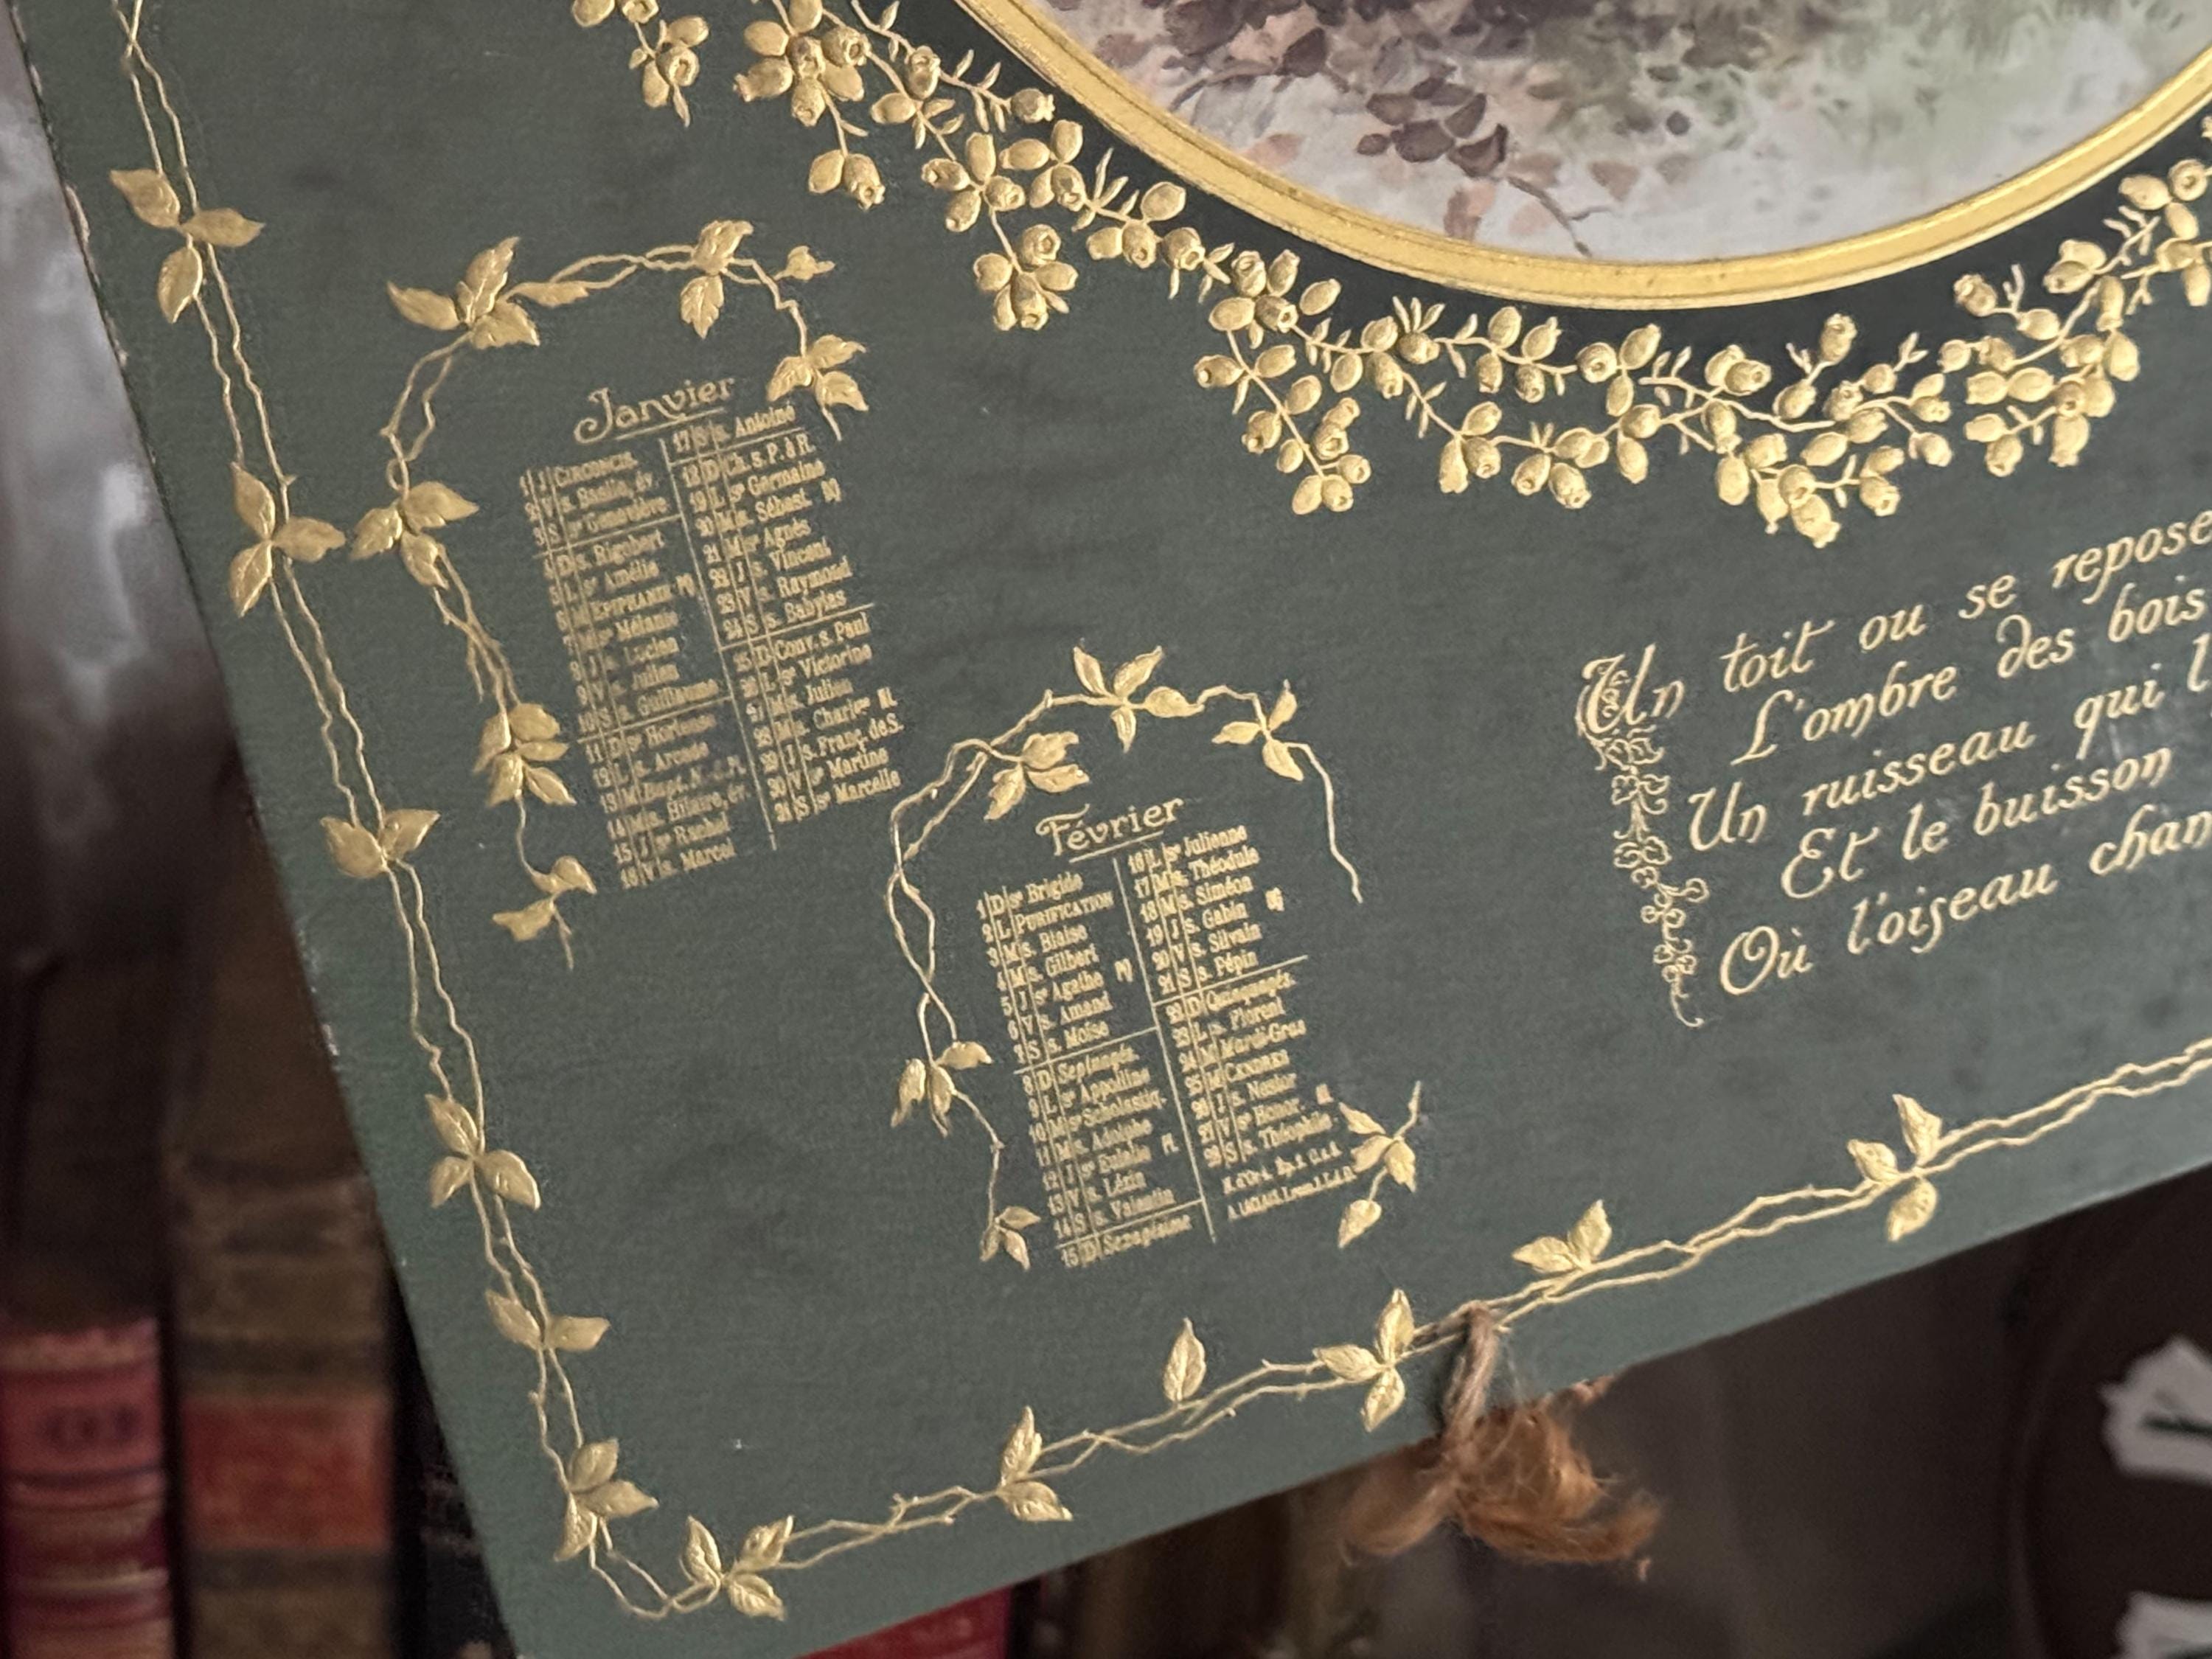 Janvier
1 J CIRCONCIS.
2 V s. Basile, év.
3 S se Geneviève
4 D s. Rigobert
5 L se Amélie
6 M EPIPHANIE
7 M se Mélanie
8 J s. Lucien
9 V s. Julien
10 S s. Guillaume
11 D se Hortense
12 L s. Arcade
13 M Bapt. N.-S.
14 M s. Hilaire, év.
15 J se Rachel
16 V s. Marcel
17 S s. Antoine
18 D Ch. s. P. à R.
19 L se Germaine
20 M s. Sébast.
21 M se Agnès
22 J s. Vincent
23 V s. Raymond
24 S s. Babylas
25 D Conv. s. Paul
26 L se Victorine
27 M s. Julien
28 M s. Charlgne
29 J s. Franç. de S.
30 V se Martine
31 S se Marcelle
Février
1 D se Brigide
2 L PURIFICATION
3 M s. Blaise
4 M s. Gilbert
5 J se Agathe
6 V s. Amand
7 S s. Moïse
8 D Septuagés.
9 L se Appolline
10 M se Scholastiq.
11 M s. Adolphe
12 J se Eulalie
13 V s. Lézin
14 S s. Valentin
15 D Sexagésime
16 L se Julienne
17 M s. Théodule
18 M s. Siméon
19 J s. Gabin
20 V s. Silvain
21 S s. Pépin
22 D Quinquagés.
23 L s. Florent
24 M Mardi-Gras
25 M CENDRES
26 J s. Nestor
27 V se Honor.
28 S s. Théophile
Un toit ou se repose
L'ombre des bois
Un ruisseau qui
Et le buisson
Où l'oiseau